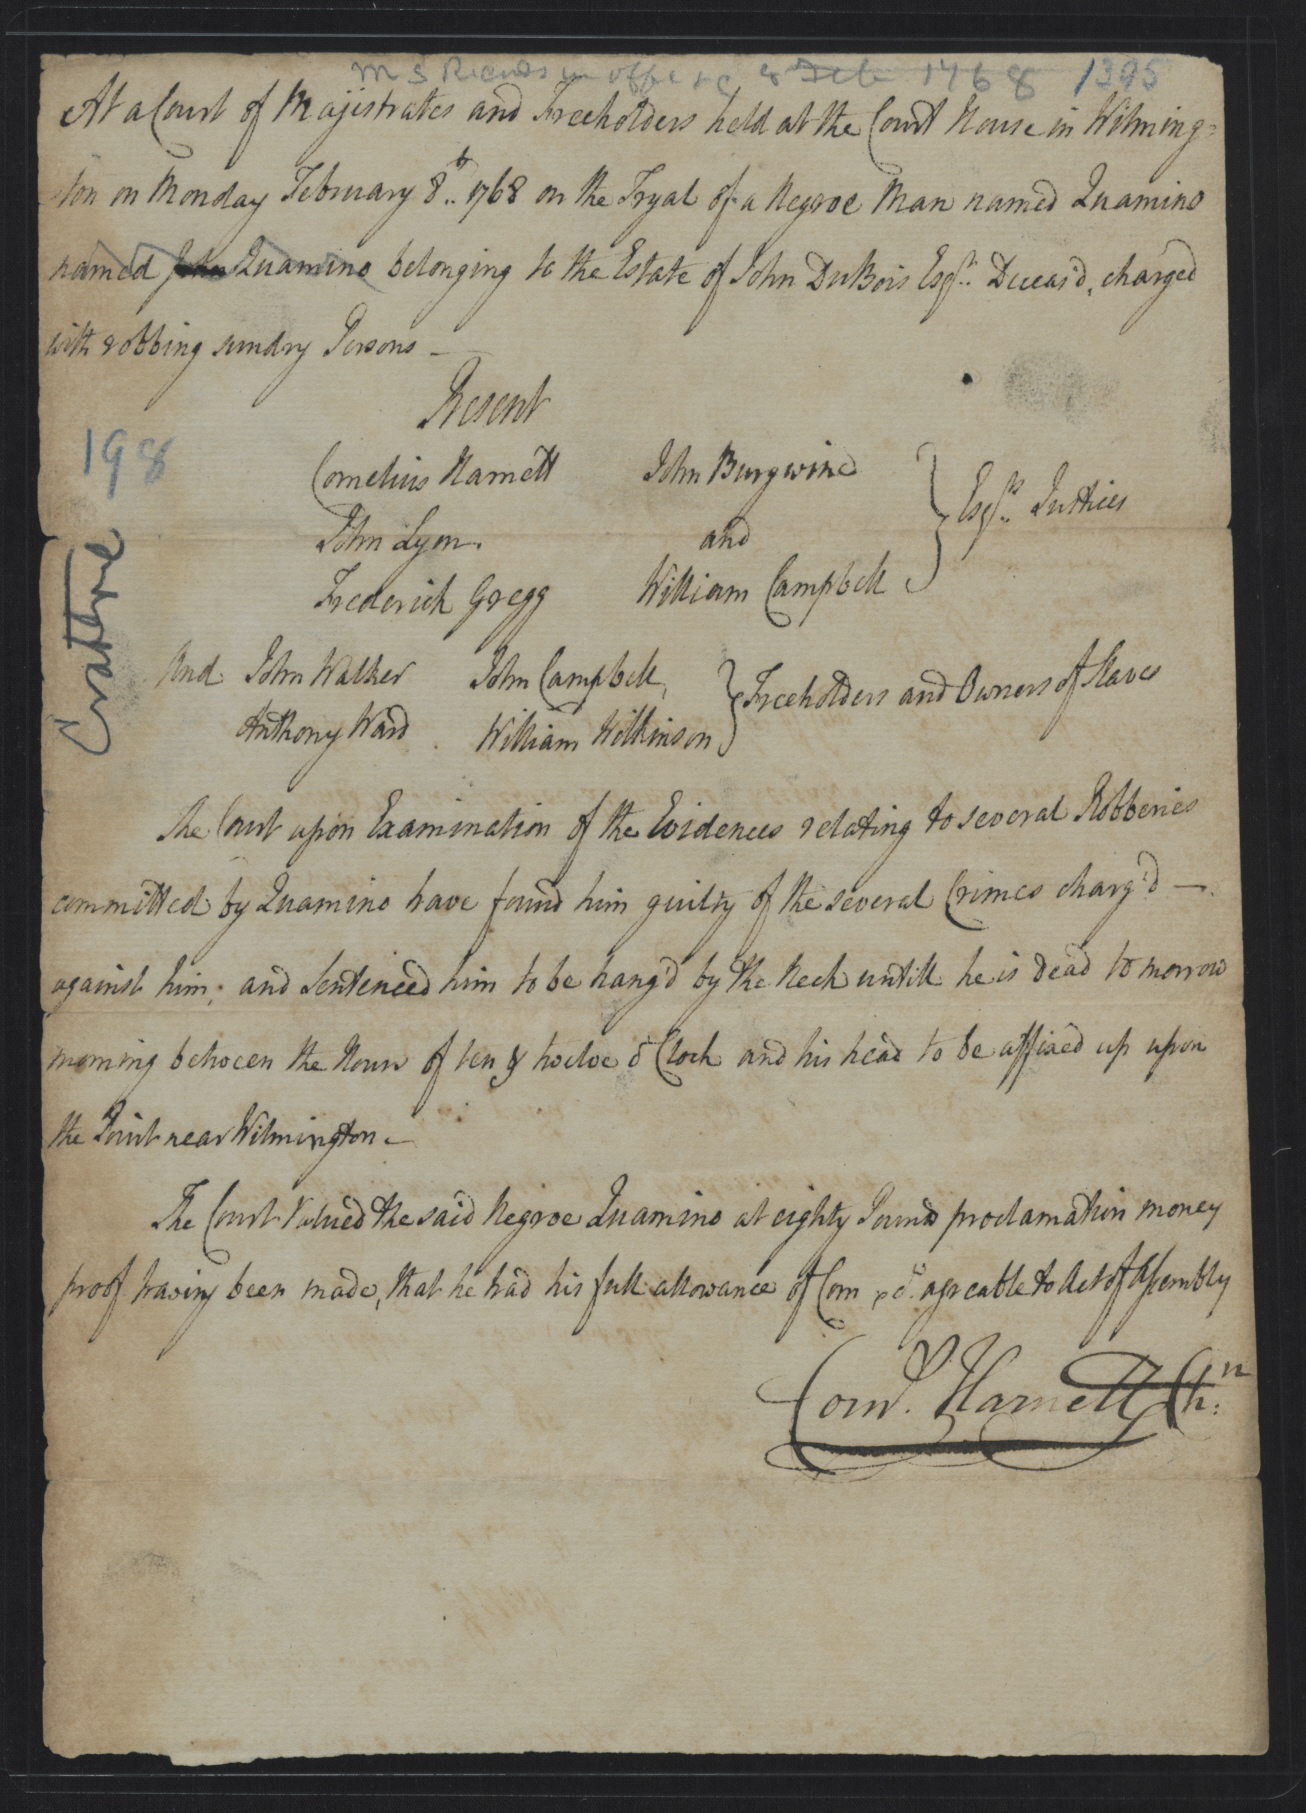 M S Records in office 8 Feb 1768 1395
At a Court of Majistrates and Freeholders held at the Court House in Wilming=
ton on Monday February 8th.. 1768 on the Tryal of a Negroe Man named Quamino
named John Quamino belonging to the Estate of John DuBois Esqr.. Deceas'd, charged
with robbing sundry Persons —
Present
198
Cornelius Harnett John Burgwine
John Lyon. and } Esqrs.. Justices
Frederick Gregg William Campbell
Crabtree
And John Walker John Campbell,
Anthony Ward William Wilkinson } Freeholders and Owners of Slaves
The Court upon Examination of the Evidences relating to several Robberies
committed by Quamino have found him guilty of the several Crimes charg'd —
against him; and Sentenced him to be hang'd by the Neck untill he is dead to morrow
morning between the Hours of ten & twelve o'Clock and his head to be affixed up upon
the Point near Wilmington —
The Court Valued the said Negroe Quamino at eighty Pounds proclamation money
proof having been made, that he had his full allowance of Corn agreable to Act of Assembly
Corns. Harnett Chn: